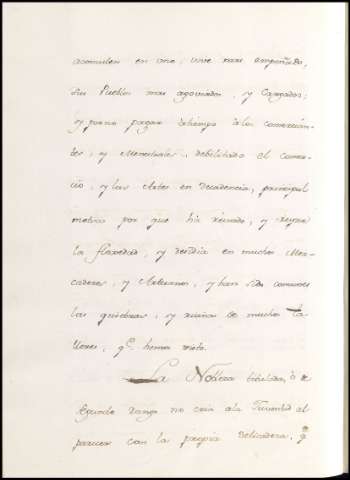 acomulen en uno, vive mas empeñado,
sus Pueblos mas agoviados, y Cargados;
y por no pagar à tiempo à los comercian-
tes, y Menestrales, debilitado el Comer-
cio, y las Artes en Decadencia, principal
mente por que ha reinado, y reyna
la floxedad, y desidia en muchos Mer-
caderes, y Artesanos, y han sido comunes
las quiebras, y ruinas de muchos
q.e hemos visto.
La Nobleza titulada, ò de
segundo rango no cria à la Juventud al
parecer con la propia delicadeza, q.e